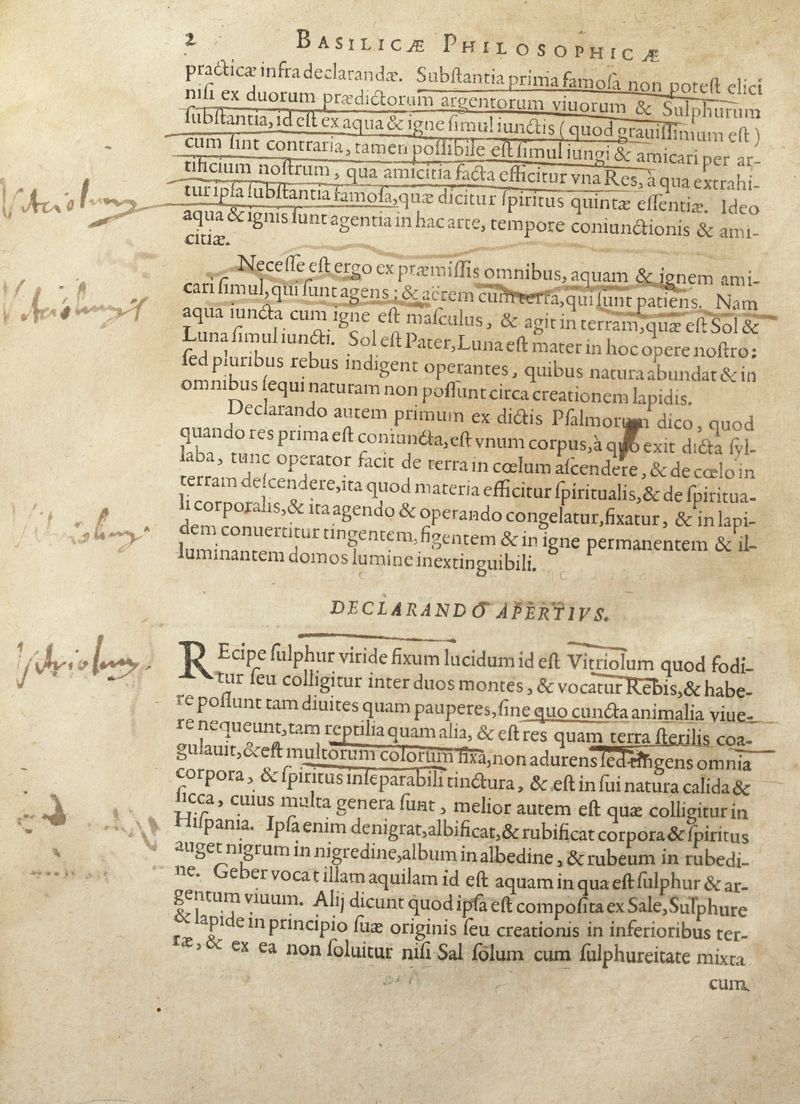 2
BASILICÆ PHILOSOPHICÆ
practicæ infra declarandæ. Subſtantia prima famoſa non poteſt elici
niſi ex duorum prædictorum argentorum viuorum & Sulphurum
ſubſtantia, id eſt ex aqua & igne ſimul iunctis (quod grauiſſimum eſt)
cum ſint contraria, tamen poſſibile eſt ſimul iungi & amicari per ar-
tificium noſtrum, qua amicitia facta efficitur vna Res, à qua extrahi-
tur ipſa ſubſtantia famoſa, quæ dicitur ſpiritus quintæ eſſentiæ. Ideo
aqua & ignis ſunt agentia in hac arte, tempore coniunctionis & ami-
citiæ.
Vitriolum
Neceſſe eſt ergo ex præmiſſis omnibus, aquam & ignem ami-
cari ſimul, qui ſunt agens; & aërem cum terra, qui ſunt patiens. Nam
aqua iuncta cum igne eſt maſculus, & agit in terram, quæ eſt Sol &
Luna ſimul iuncti. Sol eſt Pater, Luna eſt mater in hoc opere noſtro:
ſed pluribus rebus indigent operantes, quibus natura abundat & in
omnibus ſequi naturam non poſſunt circa creationem lapidis.
Vitriolum
Declarando autem primum ex dictis Pſalmorum dico, quod
quando res prima eſt coniuncta, eſt vnum corpus, à quo exit dicta ſyl-
laba, tunc operator facit de terra in cœlum aſcendere, & de cœlo in
terram deſcendere, ita quod materia efficitur ſpiritualis, & de ſpiritua-
li corporalis, & ita agendo & operando congelatur, fixatur, & in lapi-
dem conuertitur tingentem, figentem & in igne permanentem & il-
luminantem domos lumine inextinguibili.
Vitriolum
DECLARANDO APERTIVS.
REcipe ſulphur viride fixum lucidum id eſt Vitriolum quod fodi-
tur ſeu colligitur inter duos montes, & vocatur Rebis, & habe-
re poſſunt tam diuites quam pauperes, ſine quo cuncta animalia viue-
re nequeunt, tam reptilia quam alia, & eſt res quam terra ſterilis coa-
gulauit, & eſt multorum colorum fixa, non adurens ſed tingens omnia
corpora, & ſpiritus inſeparabili tinctura, & eſt in ſui natura calida &
ſicca, cuius multa genera ſunt, melior autem eſt quæ colligitur in
Hiſpania. Ipſa enim denigrat, albificat, & rubificat corpora & ſpiritus
auget nigrum in nigredine, album in albedine, & rubeum in rubedi-
ne. Geber vocat illam aquilam id eſt aquam in qua eſt ſulphur & ar-
gentum viuum. Alij dicunt quod ipſa eſt compoſita ex Sale, Sulphure
& lapide in principio ſuæ originis ſeu creationis in inferioribus ter-
ræ, & ex ea non ſoluitur niſi Sal ſolum cum ſulphureitate mixta
cum
Vitriolum.